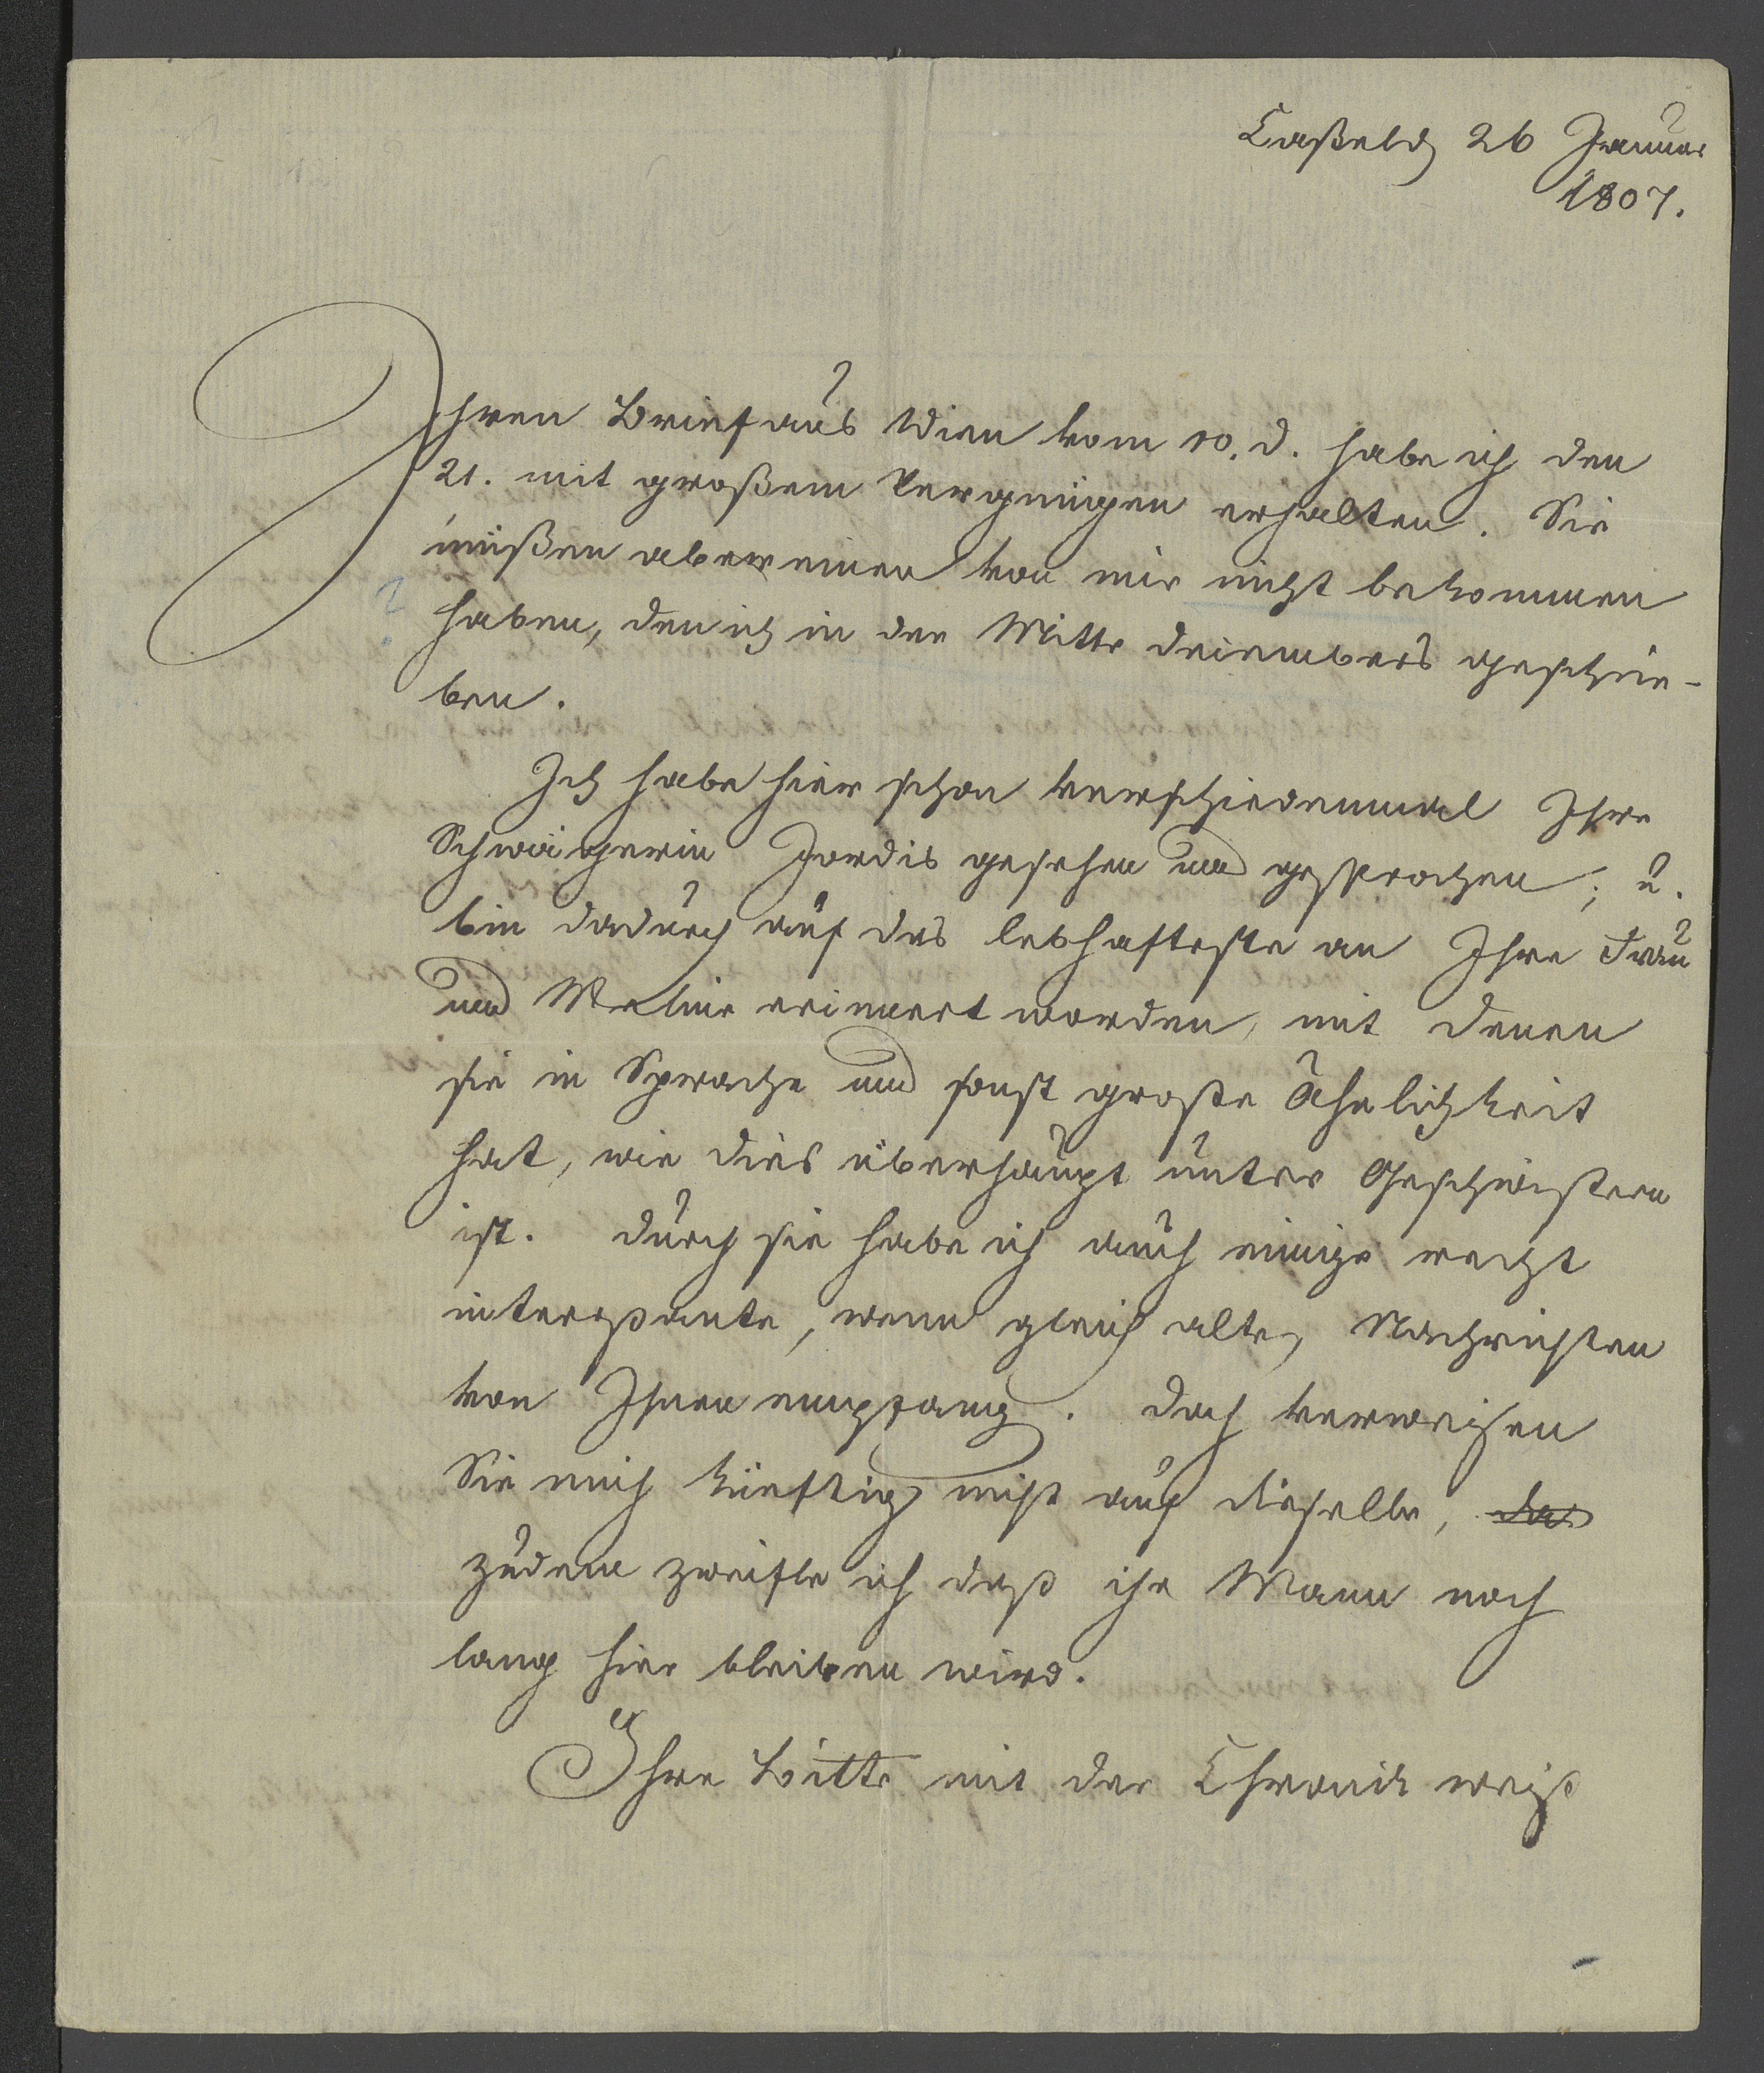 Caßel d 26 Januar
1807.
Ihren Brief aus Wien vom 10. d. habe ich den
21. mit großem Vergnügen erhalten. Sie
müßen aber einen von mir nicht bekommen
haben, den ich in der Mitte Decembers geschrie-
ben.
Ich habe hier schon verschiedenmal Ihre
Schwägerin Jordis gesehen und gesprochen; u.
bin dadurch auf das lebhafteste an Ihre Frau
und Meline erinnert worden, mit denen
sie in Sprache und sonst große Ähnlichkeit
hat, wie dies überhaupt unter Geschwistern
ist. durch sie habe ich auch einige recht
intereßante, wenn gleich alte, Nachrichten
von Ihnen empfang. doch verweisen
Sie mich künftig nicht auf dieselbe,
zudem zweifle ich daß ihr Mann noch
lang hier bleiben wird.
Ihre Bitte mit der Chronik weiß